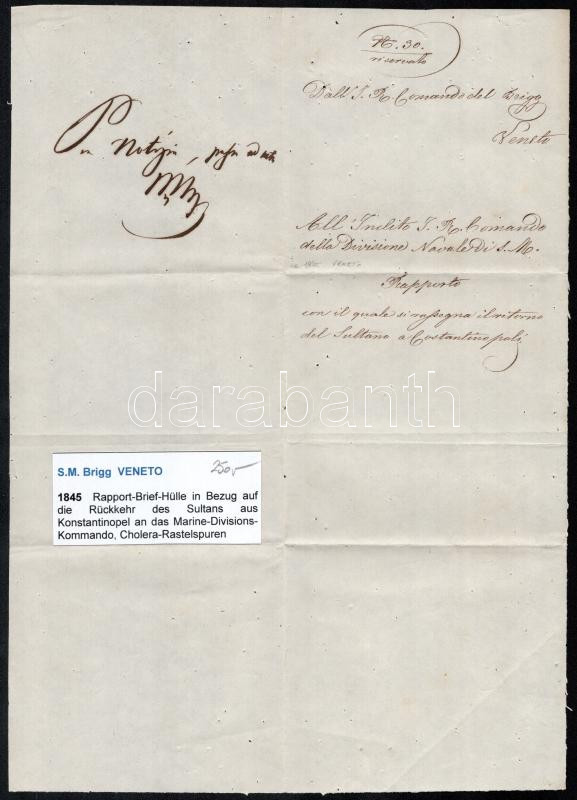 N. 30.
riservato
Dall' I. R. Comando del Brigg
Veneto
Per Notizia, passi ad acta
All' Inclito I. R. Comando
della Divisione Navale di S. M.
VENETO
Rapporto
con il quale si rassegna il ritorno
del Sultano a Costantinopoli
darabanth
S.M. Brigg VENETO 250,-
1845 Rapport-Brief-Hülle in Bezug auf
die Rückkehr des Sultans aus
Konstantinopel an das Marine-Divisions-
Kommando, Cholera-Rastelspuren